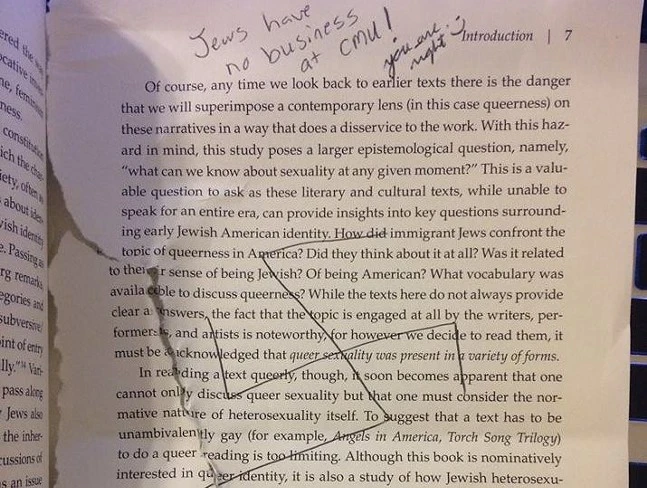 Jews have
no business
at CMU!
you are
right
Introduction | 7
Of course, any time we look back to earlier texts there is the danger
that we will superimpose a contemporary lens (in this case queerness) on
these narratives in a way that does a disservice to the work. With this haz-
ard in mind, this study poses a larger epistemological question, namely,
"what can we know about sexuality at any given moment?" This is a valu-
able question to ask as these literary and cultural texts, while unable to
speak for an entire era, can provide insights into key questions surround-
ing early Jewish American identity. How did immigrant Jews confront the
topic of queerness in America? Did they think about it at all? Was it related
to their sense of being Jewish? Of being American? What vocabulary was
available to discuss queerness? While the texts here do not always provide
clear answers, the fact that the topic is engaged at all by the writers, per-
formers, and artists is noteworthy, for however we decide to read them, it
must be acknowledged that queer sexuality was present in a variety of forms.
In reading a text queerly, though, it soon becomes apparent that one
cannot only discuss queer sexuality but that one must consider the nor-
mative nature of heterosexuality itself. To suggest that a text has to be
unambivalently gay (for example, Angels in America, Torch Song Trilogy)
to do a queer reading is too limiting. Although this book is nominatively
interested in queer identity, it is also a study of how Jewish heterosexu-
ered the
ness.
about
identity
e. Passing as
remarks
egories and
subversive
int of entry
lly."
pass along
Jews also
the inher-
cussions of
as an issue